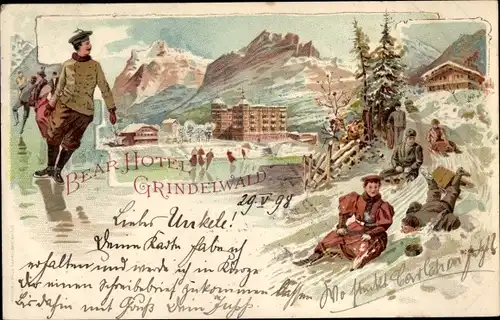 BEAR HOTEL
GRINDELWALD
29 V 98
Liebes Unkele!
Deine Karte habe ich
erhalten und werde ich in Kürze
Dir einen Schreibebrief zukommen lassen
Bis dahin mit Gruß Dein
Wo